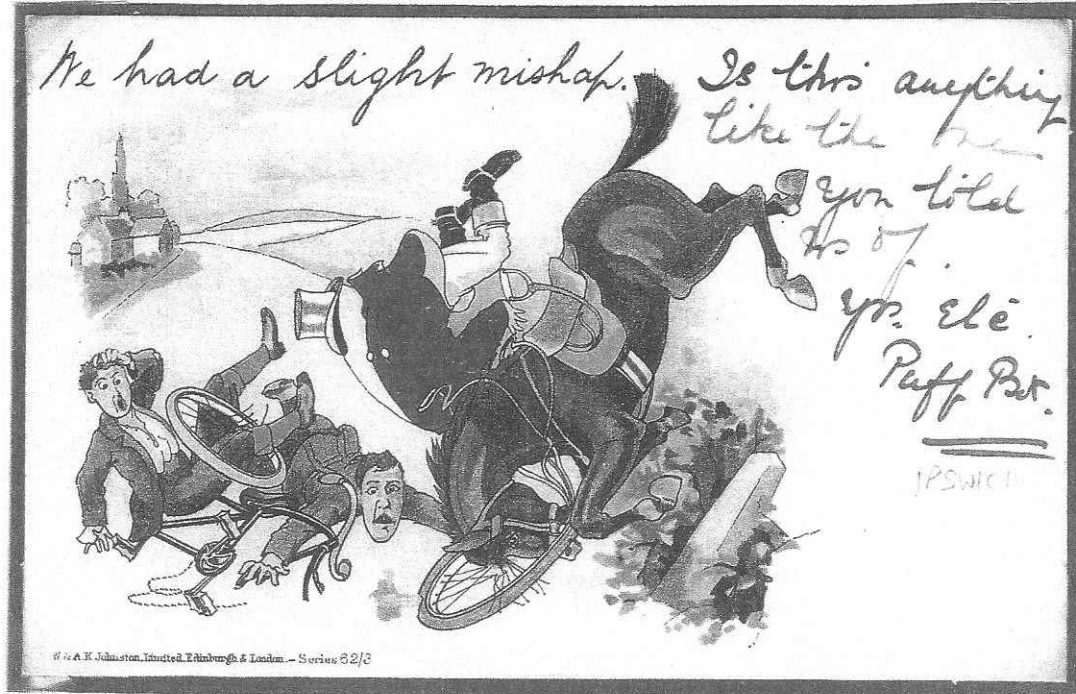 We had a slight mishap.
Is this anything
like the one
you told
us of.
Yrs. Elé
Puff Bet.
IPSWICH
W & A.K. Johnston, Limited, Edinburgh & London. – Series 62/3